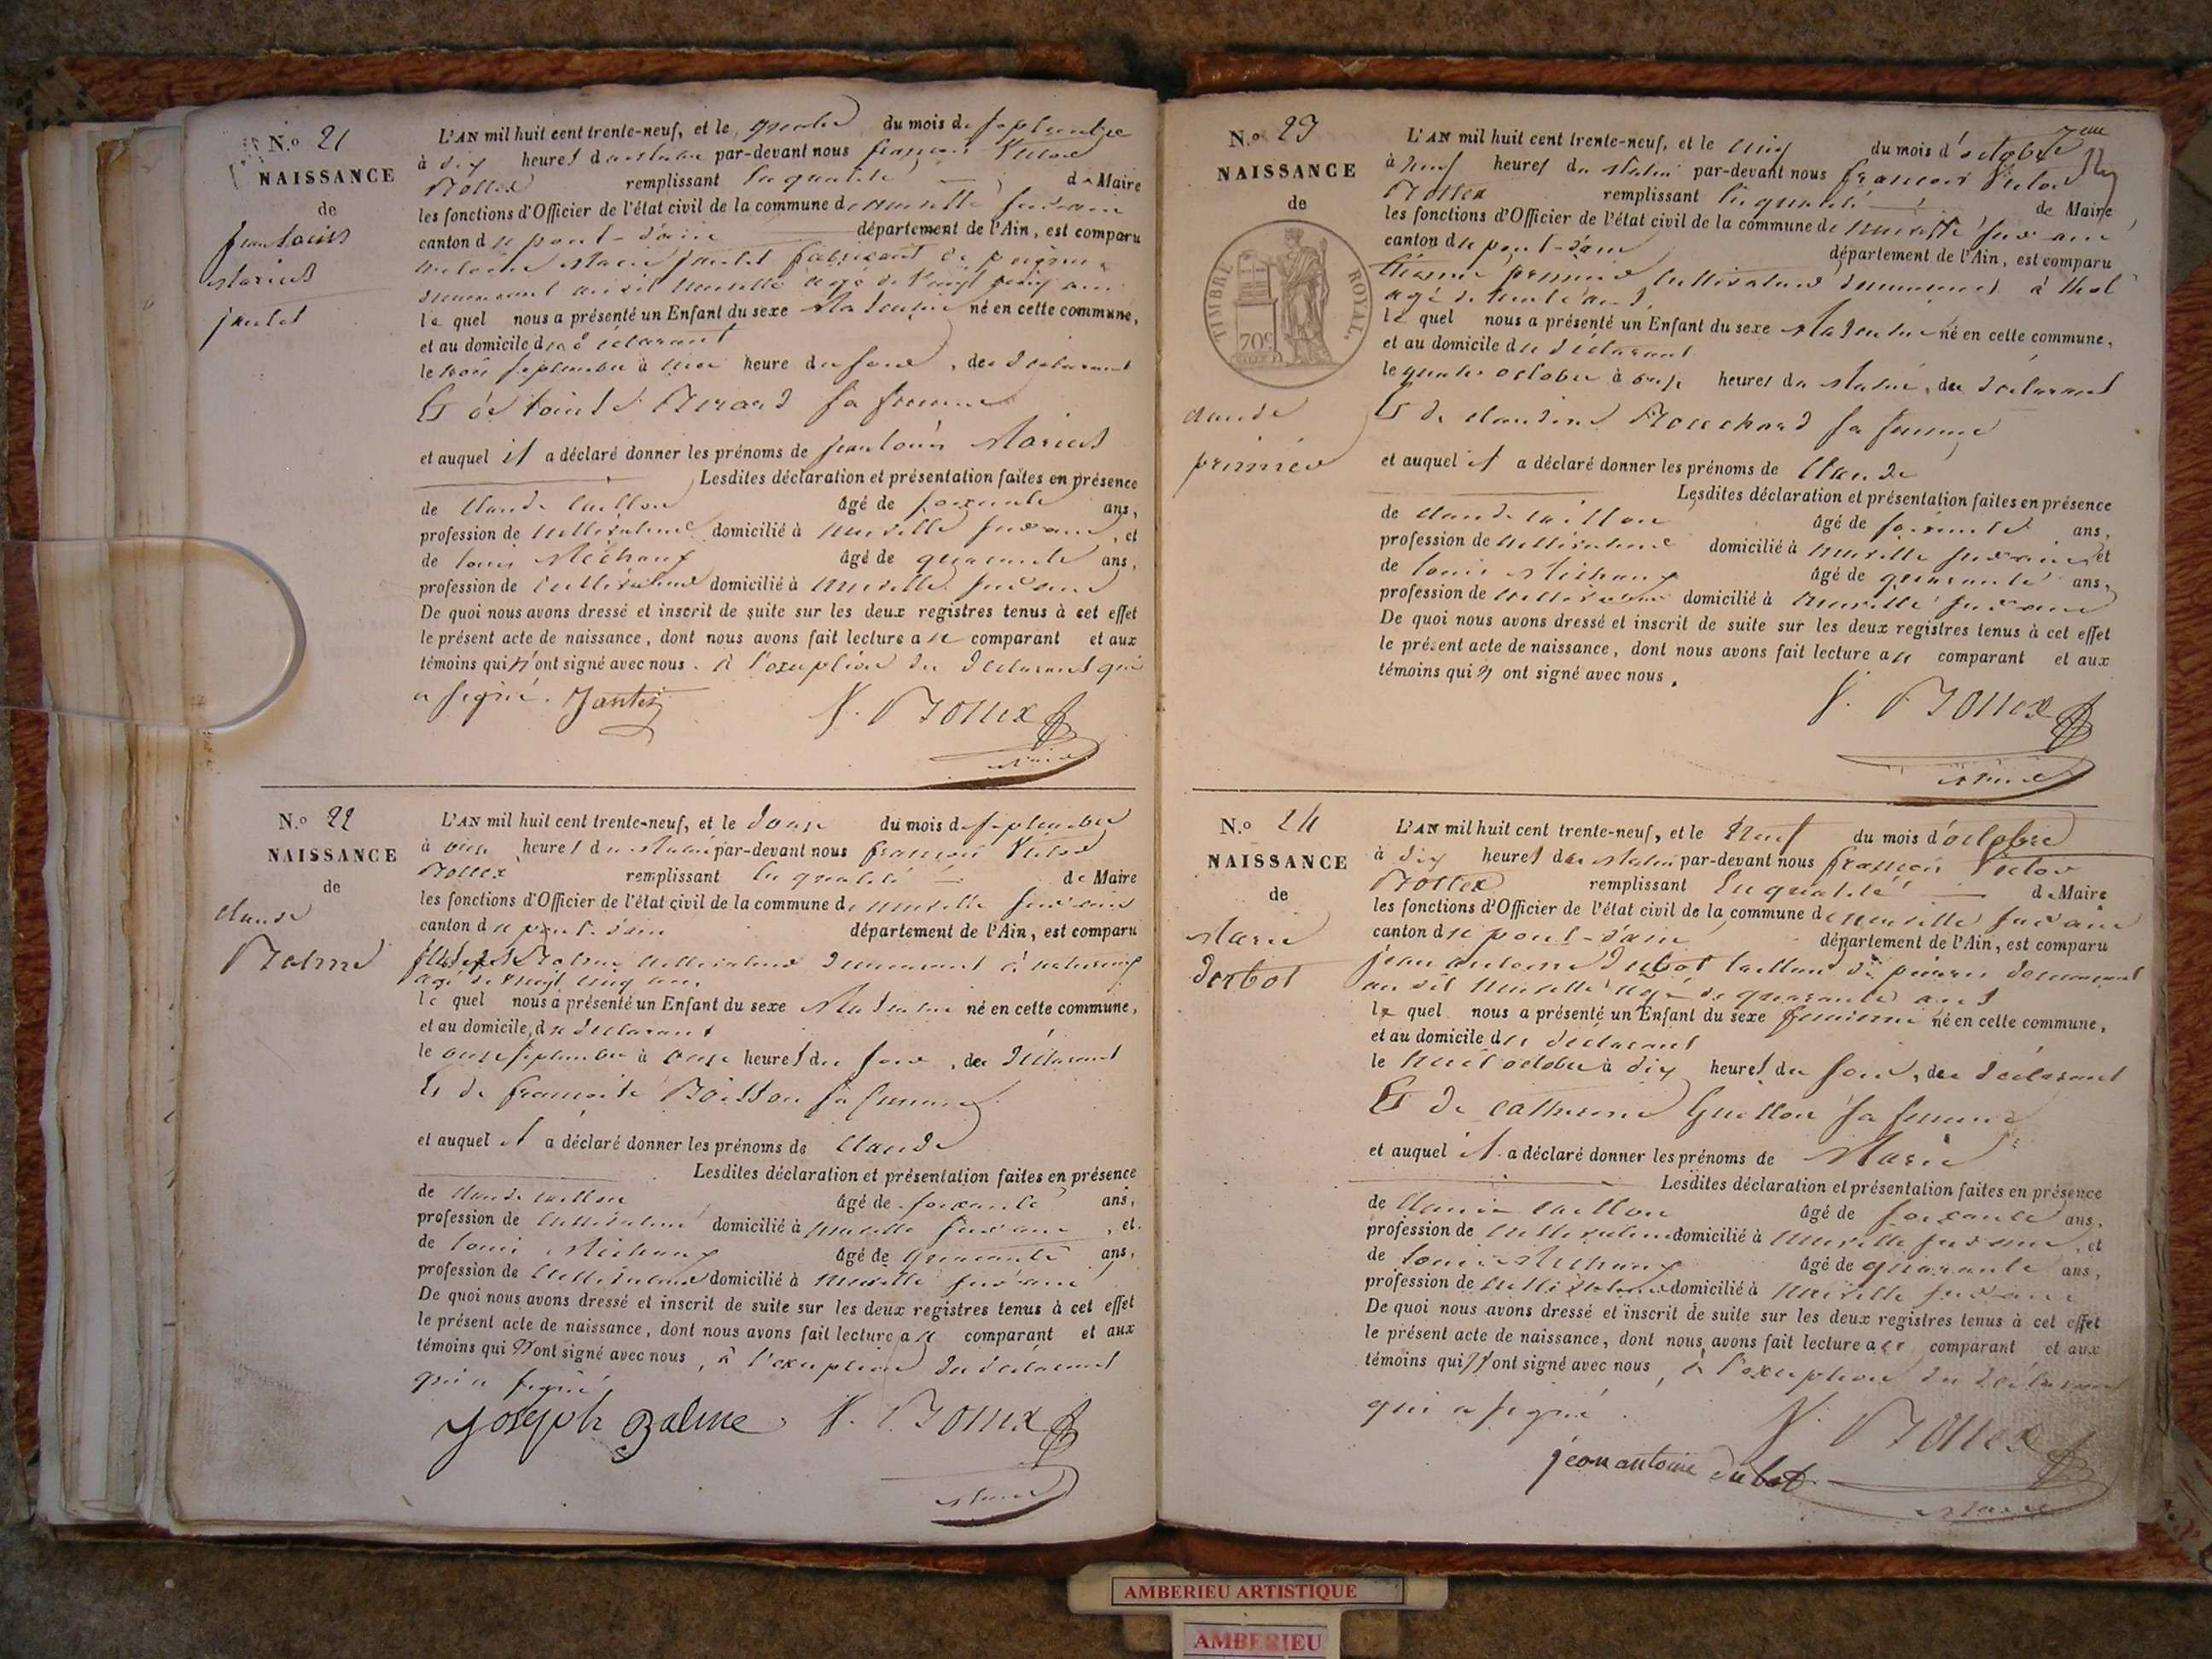 N.o 21
NAISSANCE
de
jean louis
Marius
jantet
L'AN mil huit cent trente-neuf, et le quatre du mois de septembre
à dix heures du matin par-devant nous françois Victor
Bottex remplissant la qualité de Maire
les fonctions d'Officier de l'état civil de la commune de neuville sur ain
canton de pont-d'ain département de l'Ain, est comparu
jantet fabricant de peignes
demeurant au dit neuville agé de vingt ans
le quel nous a présenté un Enfant du sexe Masculin né en cette commune,
et au domicile du déclarant
le trois septembre à une heure du soir, du déclarant
Et de sa femme
et auquel il a déclaré donner les prénoms de jean louis Marius
Lesdites déclaration et présentation faites en présence
de Claude caillon âgé de soixante ans,
profession de cultivateur domicilié à neuville sur ain, et
de louis Michaux âgé de quarante ans,
profession de cultivateur domicilié à neuville sur ain
De quoi nous avons dressé et inscrit de suite sur les deux registres tenus à cet effet
le présent acte de naissance, dont nous avons fait lecture au comparant et aux
témoins qui n'ont signé avec nous. à l'exception du déclarant qui
a signé. Jantet V. Bottex
Maire
N.o 22
NAISSANCE
de
claude
Balme
L'AN mil huit cent trente-neuf, et le douze du mois de septembre
à onze heures du matin par-devant nous françois Victor
Bottex remplissant la qualité de Maire
les fonctions d'Officier de l'état civil de la commune de neuville sur ain
canton de pont-d'ain département de l'Ain, est comparu
joseph Balme cultivateur demeurant à
agé de vingt cinq ans
le quel nous a présenté un Enfant du sexe Masculin né en cette commune,
et au domicile du déclarant
le onze septembre à onze heures du soir, du déclarant
Et de françoise Boisson sa femme
et auquel il a déclaré donner les prénoms de Claude
Lesdites déclaration et présentation faites en présence
de claude caillon âgé de soixante ans,
profession de cultivateur domicilié à neuville sur ain, et
de louis Michaux âgé de quarante ans,
profession de cultivateur domicilié à neuville sur ain
De quoi nous avons dressé et inscrit de suite sur les deux registres tenus à cet effet
le présent acte de naissance, dont nous avons fait lecture au comparant et aux
témoins qui n'ont signé avec nous, à l'exception du déclarant
qui a signé
joseph Balme V. Bottex
Maire
N.o 23
NAISSANCE
de
TIMBRE ROYAL.
70c
claude
prémier
L'AN mil huit cent trente-neuf, et le cinq du mois d'octobre
à neuf heures du matin par-devant nous françois Victor
Bottex remplissant la qualité de Maire
les fonctions d'Officier de l'état civil de la commune de neuville sur ain
canton de pont-d'ain département de l'Ain, est comparu
cultivateur demeurant à thol
agé de trente ans
le quel nous a présenté un Enfant du sexe Masculin né en cette commune,
et au domicile du déclarant
le quatre octobre à onze heures du matin, du déclarant
Et de claudine Bouchard sa femme
et auquel il a déclaré donner les prénoms de Claude
Lesdites déclaration et présentation faites en présence
de claude caillon âgé de soixante ans,
profession de cultivateur domicilié à neuville sur ain et
de louis Michaux âgé de quarante ans,
profession de cultivateur domicilié à neuville sur ain
De quoi nous avons dressé et inscrit de suite sur les deux registres tenus à cet effet
le présent acte de naissance, dont nous avons fait lecture au comparant et aux
témoins qui n'ont signé avec nous.
V. Bottex
Maire
N.o 24
NAISSANCE
de
Marie
L'AN mil huit cent trente-neuf, et le Neuf du mois d'octobre
à dix heures du matin par-devant nous françois Victor
Bottex remplissant la qualité de Maire
les fonctions d'Officier de l'état civil de la commune de neuville sur ain
canton de pont-d'ain département de l'Ain, est comparu
jean antoine dubot tailleur de pierre demeurant
au dit neuville agé de quarante ans
le quel nous a présenté un Enfant du sexe feminin né en cette commune,
et au domicile du déclarant
le huit octobre à dix heures du soir, du déclarant
Et de catherine Guillon sa femme
et auquel il a déclaré donner les prénoms de Marie
Lesdites déclaration et présentation faites en présence
de Claude caillon âgé de soixante ans,
profession de cultivateur domicilié à neuville sur ain, et
de louis Michaux âgé de quarante ans,
profession de cultivateur domicilié à neuville sur ain
De quoi nous avons dressé et inscrit de suite sur les deux registres tenus à cet effet
le présent acte de naissance, dont nous avons fait lecture au comparant et aux
témoins qui n'ont signé avec nous, à l'exception du déclarant
qui a signé. V. Bottex
jean antoine dubot
Maire
AMBERIEU ARTISTIQUE
AMBERIEU